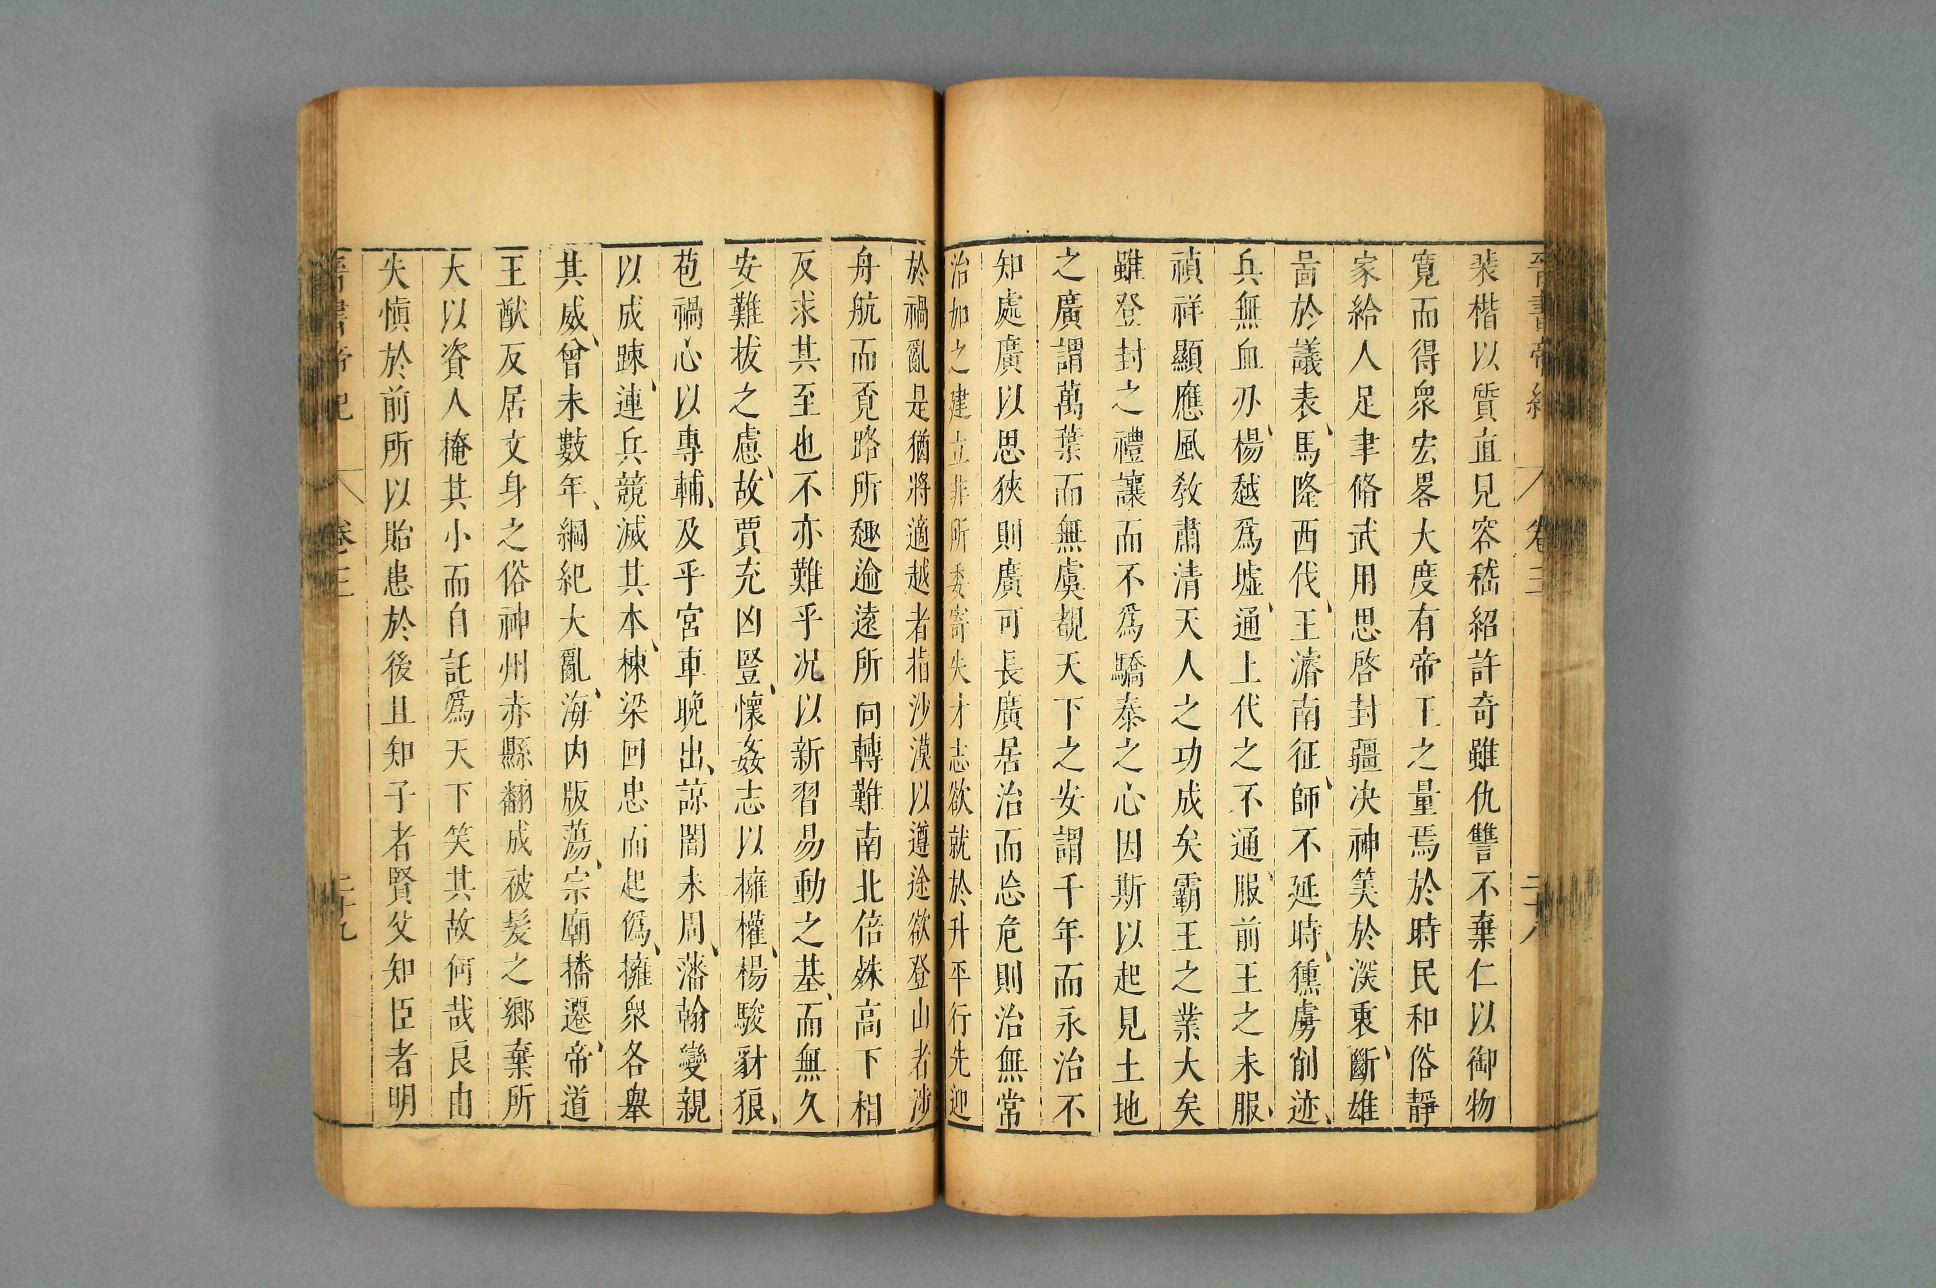 晉書帝紀 卷三 二十八
裴楷以質直見容嵇紹許奇雖仇讐不棄仁以御物
寬而得衆宏畧大度有帝王之量焉於時民和俗靜
家給人足聿脩武用思啓封疆决神筭於深衷斷雄
圖於議表馬隆西伐王濬南征師不延時獯虜削迹
兵無血刃楊越爲墟通上代之不通服前王之未服
禎祥顯應風敎肅清天人之功成矣霸王之業大矣
雖登封之禮讓而不爲驕泰之心因斯以起見土地
之廣謂萬葉而無虞覩天下之安謂千年而永治不
知處廣以思狹則廣可長廣居治而忘危則治無常
治加之建立非所委寄失才志欲就於升平行先迎
於禍亂是猶將適越者指沙漠以遵途欲登山者涉
舟航而覓路所趣逾遠所向轉難南北倍殊高下相
反求其至也不亦難乎况以新習易動之基而無久
安難拔之慮故賈充凶豎懷姦志以擁權楊駿豺狼
苞禍心以專輔及乎宮車晚出諒闇未周藩翰變親
以成踈連兵競滅其本棟梁回忠而起僞擁衆各舉
其威曾未數年綱紀大亂海内版蕩宗廟播遷帝道
王猷反居文身之俗神州赤縣翻成被髮之鄉棄所
大以資人掩其小而自託爲天下笑其故何哉良由
失慎於前所以貽患於後且知子者賢父知臣者明
晉書帝紀 卷三 二十九